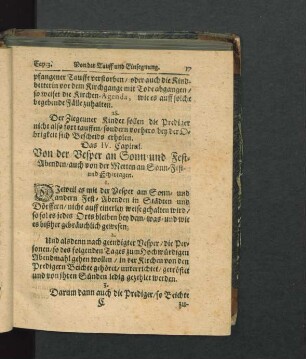 Cap. 3. Von der Tauff und Einsegnung. 37
pfangener Tauffe verstorben / oder auch die Kind-
betterin vor dem Kirchgange mit Tode abgangen /
so weiset die Kirchen-Agenda, wie es auff solche
begebende Fälle zuhalten.
Der Ziegeuner Kinder sollen die Prediger
nicht also fort tauffen / sondern vorhero bey der O-
brigkeit sich Bescheids erholen.
Das IV. Capitul.
Von der Vesper an Sonn und Fest-
Abenden / auch von der Metten an Sonn-Fest-
und
1.
DJeweil es mit der Vesper am Sonn- und
andern Fest-Abenden in Städten und
Dörffern / nicht auff einerley weise gehalten wird /
so sol es jedes Orts bleiben bey dem / was und wie
es bißher gebräuchlich gewesen.
2.
Und als denn nach geendigter Vesper / die Per-
sonen / so des folgenden Tages zum Hochwürdigen
Abendmahl gehen wollen / in der Kirchen von den
Predigern Beicht gehöret / unterrichtet / getröstet
und von ihren Sünden ledig gezehlet werden.
3.
Darum dann auch die Prediger / so Beichte
C zu-